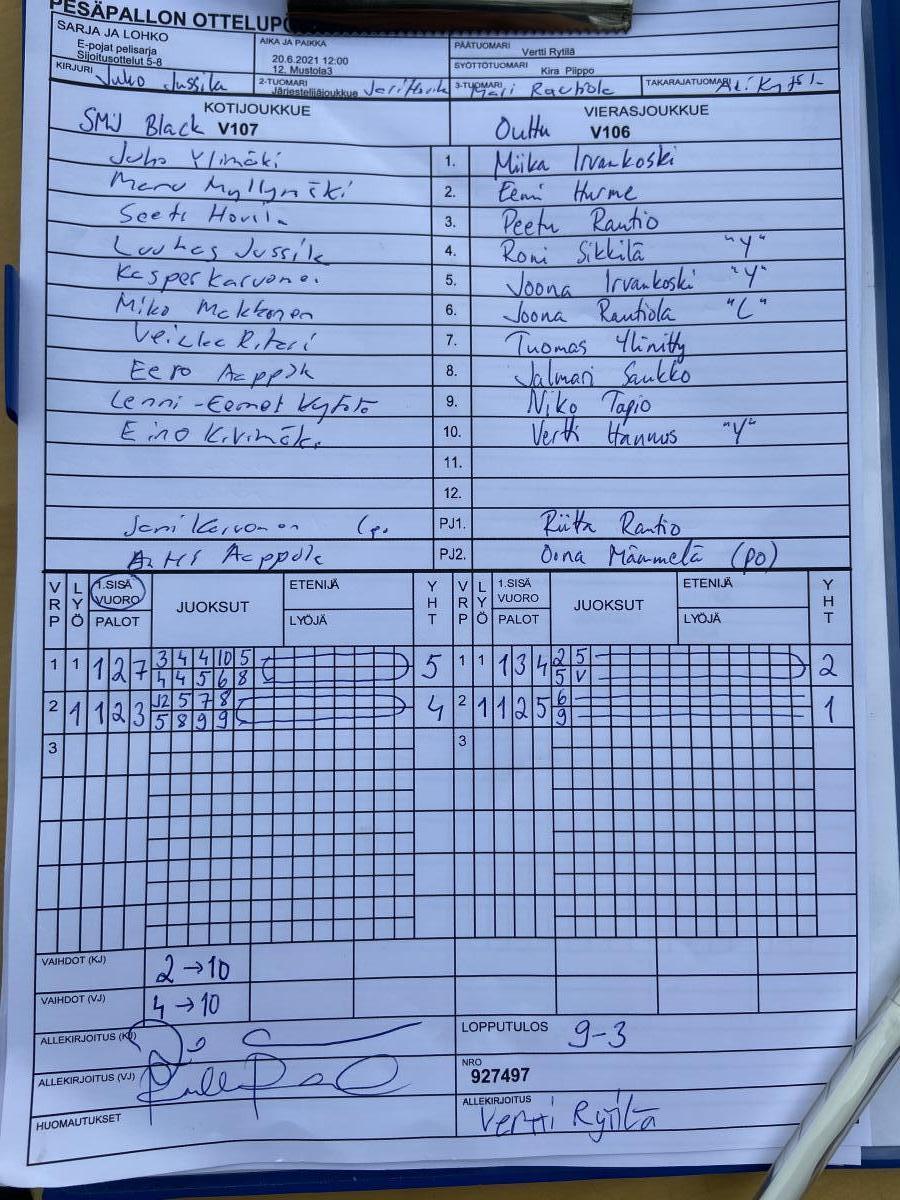 PESÄPALLON OTTELUPÖ
SARJA JA LOHKO
E-pojat pelisarja
Sijoitusottelut 5-8
AIKA JA PAIKKA
20.6.2021 12:00
12. Mustola3
PÄÄTUOMARI Vertti Rytilä
SYÖTTÖTUOMARI Kira Piippo
KIRJURI Juho Jussila
2-TUOMARI
Järjestelijäjoukkue
3-TUOMARI Mari Rautiola
TAKARAJATUOMARI
KOTIJOUKKUE
SMJ Black V107
VIERASJOUKKUE
Outtu V106
Juho Ylimäki 1. Miika Irvankoski
Manu Myllymäki 2. Eemi Hurme
Seeti Hovila 3. Peetu Rautio
Luukas Jussila 4. Roni Sikkilä "Y"
Kasper Karvonen 5. Joona Irvankoski "Y"
Miko Makkonen 6. Joona Rautiola "L"
Veikka Ritari 7. Tuomas Ylinitty
Eero 8. Jalmari Saukko
Lenni-Eemet Kytölä 9. Niko Tapio
Eino Kivimäki 10. Vertti Hannus "Y"
11.
12.
Jani Karvonen PJ1. Riitta Rantio
PJ2. Oona Mämmelä (PO)
VRP LYÖ 1.SISÄ VUORO PALOT JUOKSUT ETENIJÄ LYÖJÄ YHT VRP LYÖ 1.SISÄ VUORO PALOT JUOKSUT ETENIJÄ LYÖJÄ YHT
1 1 1 2 7 3 4 4 10 5 5 1 1 1 3 4 2 5 2
4 4 5 6 8 5 V
2 1 1 2 3 J2 5 7 8 4 2 1 1 2 5 6 1
5 8 9 9 9
3 3
VAIHDOT (KJ) 2→10
VAIHDOT (VJ) 4→10
ALLEKIRJOITUS (KJ)
LOPPUTULOS 9-3
ALLEKIRJOITUS (VJ)
NRO
927497
HUOMAUTUKSET
ALLEKIRJOITUS
Vertti Rytilä